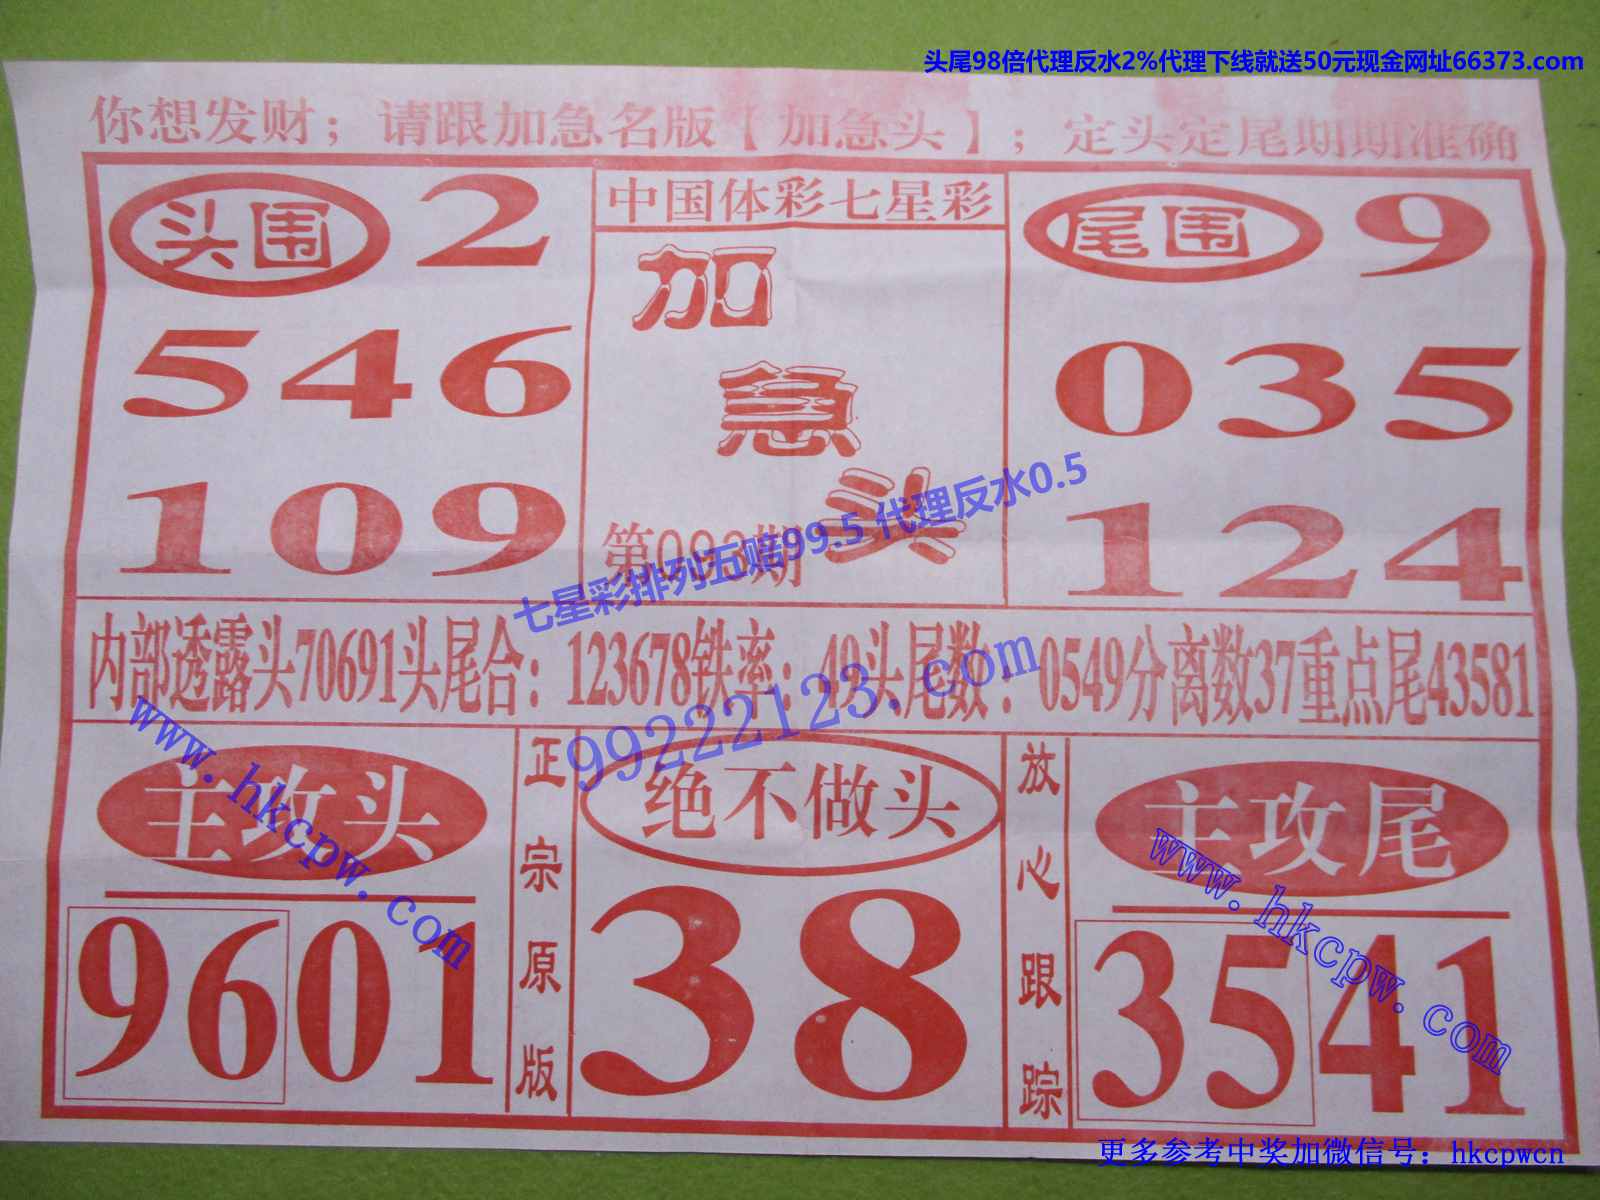 头尾98倍代理反水2%代理下线就送50元现金网址66373.com
你想发财；请跟加急名版【加急头】；定头定尾期期准确
头围 2
546
109
中国体彩七星彩
加急头
第093期
尾围 9
035
124
七星彩排列五赔99.5 代理反水0.5
内部透露头70691头尾合：123678铁率：49头尾数：0549分离数37重点尾43581
99222123.com
www.hkcpw.com
主攻头
9601
正宗原版
绝不做头
38
放心跟踪
主攻尾
3541
www.hkcpw.com
更多参考中奖加微信号：hkcpwcn